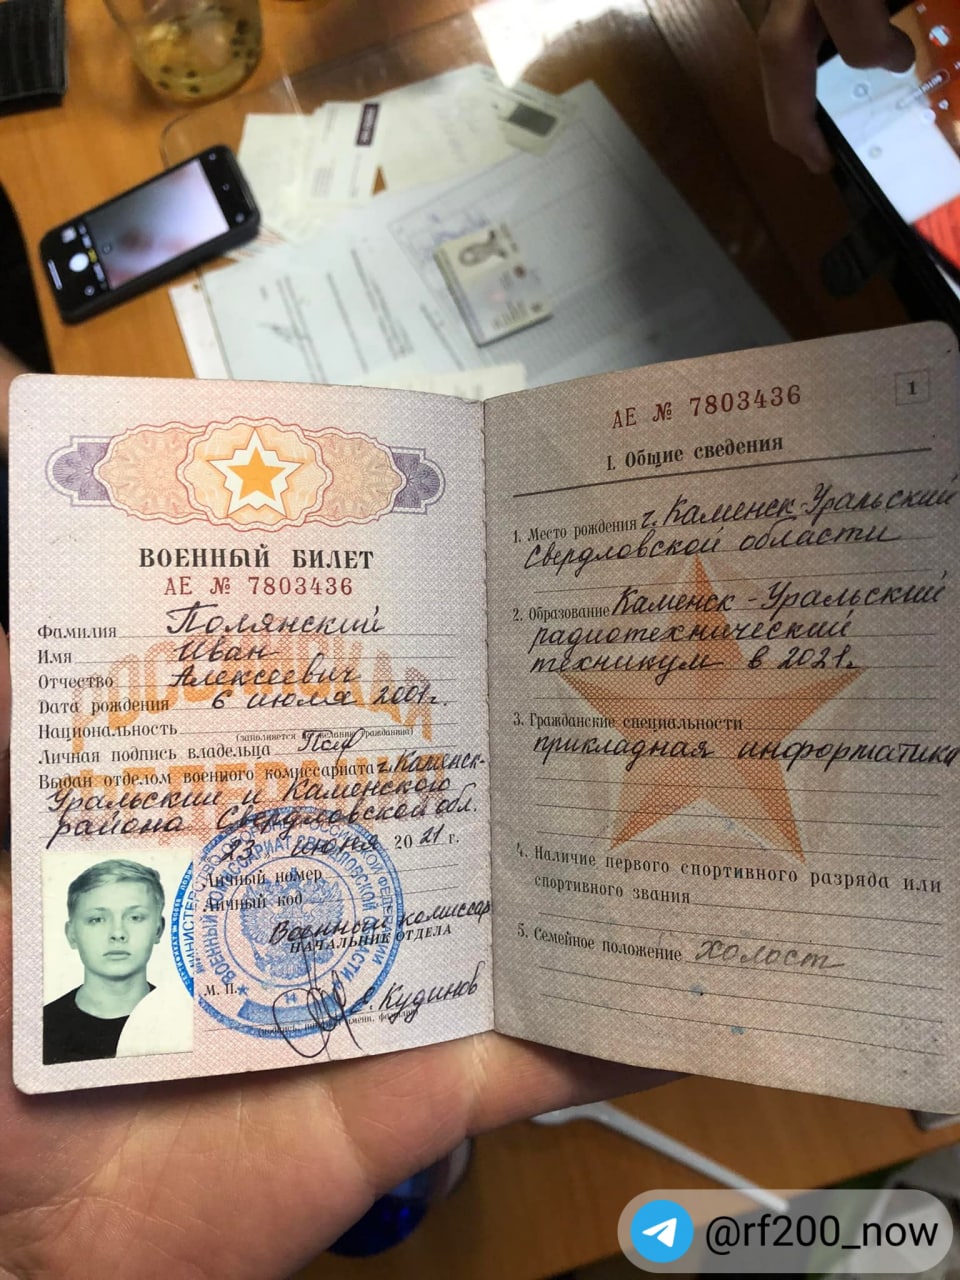 ВОЕННЫЙ БИЛЕТ
АЕ № 7803436
Фамилия Полянский
Имя Иван
Отчество Алексеевич
Дата рождения 6 июля 2001г.
Национальность
(заполняется по желанию гражданина)
Личная подпись владельца
Выдан отделом военного комиссариата г. Каменск-
Уральский и Каменского
района Свердловской обл.
23 июня 2021 г.
Личный номер
Личный код
Военный комиссар
НАЧАЛЬНИК ОТДЕЛА
М. П.
Кудинов
1
АЕ № 7803436
I. Общие сведения
1. Место рождения г. Каменск-Уральский
Свердловской области
2. Образование Каменск-Уральский
радиотехнический
техникум в 2021г.
3. Гражданские специальности
прикладная информатика
4. Наличие первого спортивного разряда или
спортивного звания
5. Семейное положение холост
@rf200_now